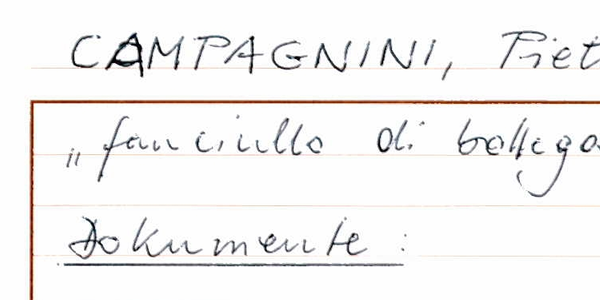 CAMPAGNINI, Piet
„fanciullo di bottega
Dokumente :